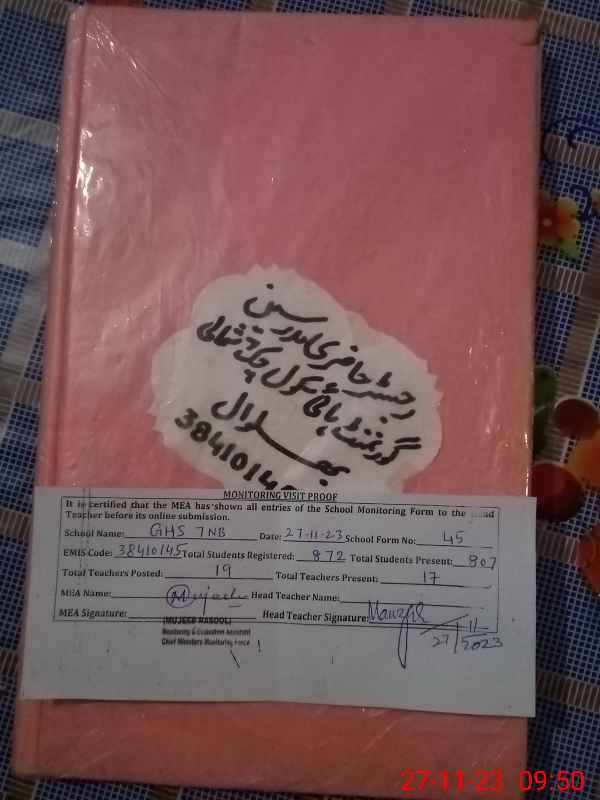 رجسٹر حاضری مدرسین
گورنمنٹ ہائی سکول چک 7 شمالی
بھلوال
3841014
MONITORING VISIT PROOF
It is certified that the MEA has shown all entries of the School Monitoring Form to the Head
Teacher before its online submission.
School Name: GHS 7NB Date: 27-11-23 School Form No: 45
EMIS Code: 38410145 Total Students Registered: 872 Total Students Present: 807
Total Teachers Posted: 19 Total Teachers Present: 17
MEA Name: Mujeeb Head Teacher Name:
MEA Signature: Head Teacher Signature:
(MUJEEB RASOOL)
Monitoring & Evaluation Assistant
Chief Ministers Monitoring Force
27/11/2023
27-11-23 09:50